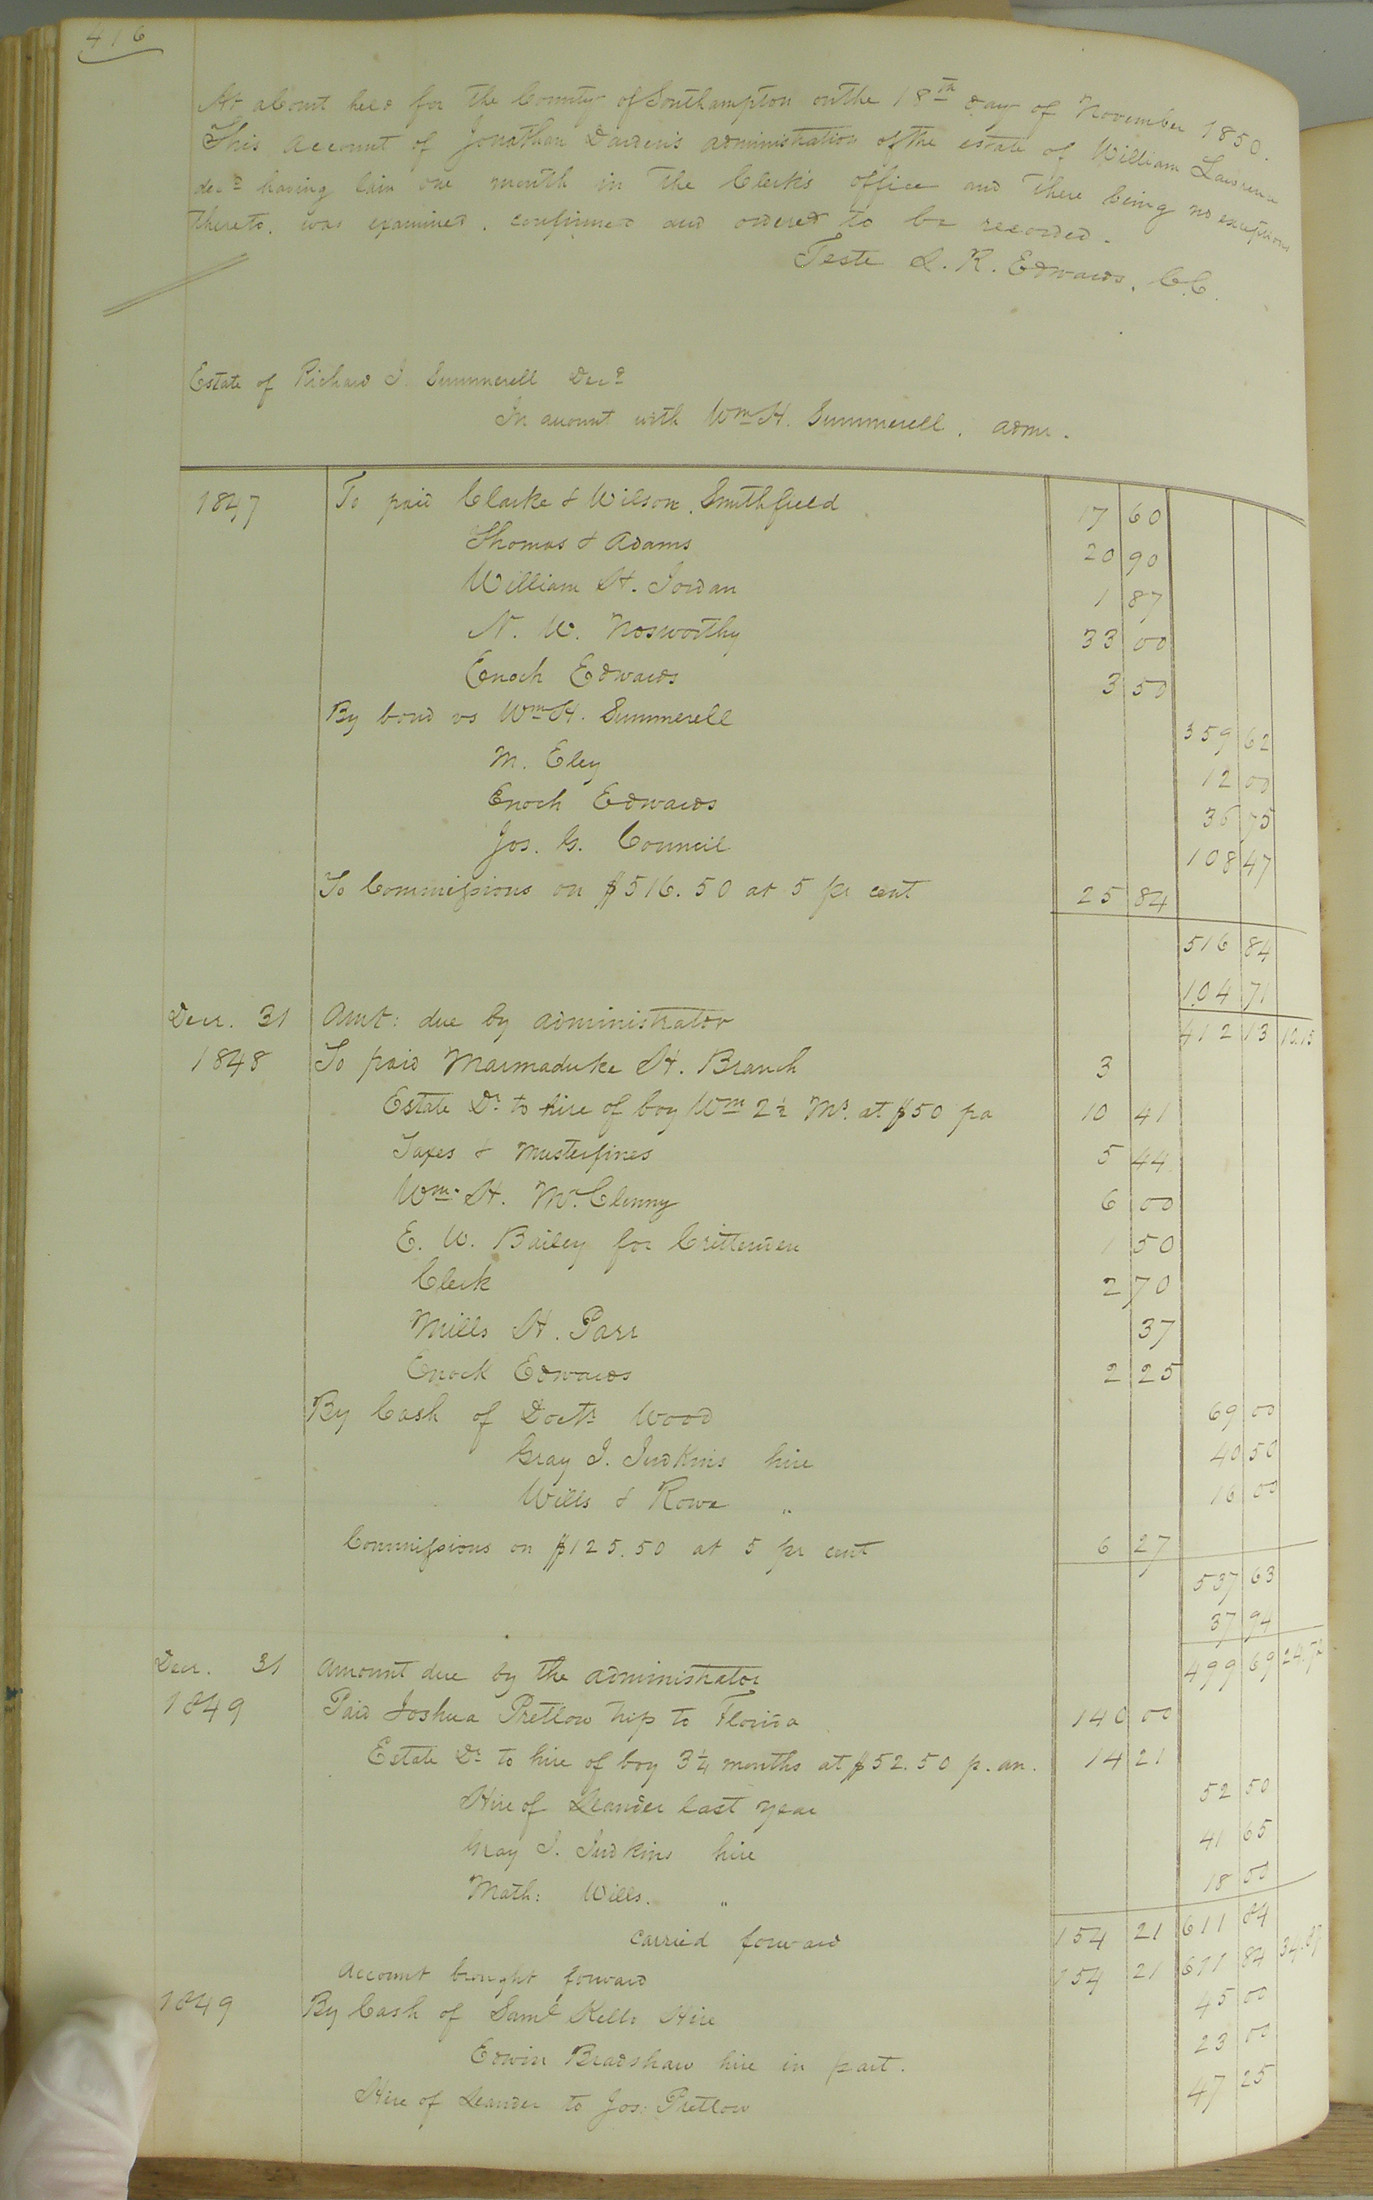 416
At a Court held for the County of Southampton on the 18th day of November 1850.
This account of Jonathan Darden's administration of the estate of William Lawrence
decd having lain one month in the Clerk's office and there being no exceptions
thereto, was examined, confirmed and ordered to be recorded.
Teste L. R. Edwards, C.C.
Estate of Richard J. Summerell Decd
In account with Wm H. Summerell, admr.
1847 To paid Clarke & Wilson, Smithfield 17 60
Thomas & Adams 20 90
William H. Jordan 1 87
N. W. Nosworthy 33 00
Enoch Edwards 3 50
By bond vs Wm H. Summerell 359 62
M. Eley 12 00
Enoch Edwards 36 75
Jos. G. Council 108 47
To Commissions on $516.50 at 5 pr cent 25 84
516 84
104 71
Decr. 31 Amt: due by administrator 412 13 10.15
1848 To paid Marmaduke H. Branch 3
Estate Dr to hire of boy Wm 2½ Ms. at $50 pa 10 41
Taxes & Musterfines 5 44
Wm. H. McClenny 6 00
E. W. Bailey for Crittenden 1 50
Clerk 2 70
Mills H. Parr 37
Enock Edwards 2 25
By Cash of Doctr Wood 69 00
Gray J. Judkins hire 40 50
Wills & Rowe " 16 00
Commissions on $125.50 at 5 pr cent 6 27
537 63
37 94
Decr. 31 Amount due by the administrator 499 69
1849 Paid Joshua Pretlow trip to Florida 140 00
Estate Dr to hire of boy 3¼ months at $52.50 p. an. 14 21
Hire of Leander last year 52 50
Gray J. Judkins hire 41 65
Math: Wills. " 18 00
carried forward 154 21 611 84
Account brought forward 154 21 611 84
1849 By Cash of Saml Kello Hire 45 00
Edwin Bradshaw hire in part. 23 00
Hire of Leander to Jos: Pretlow 47 25